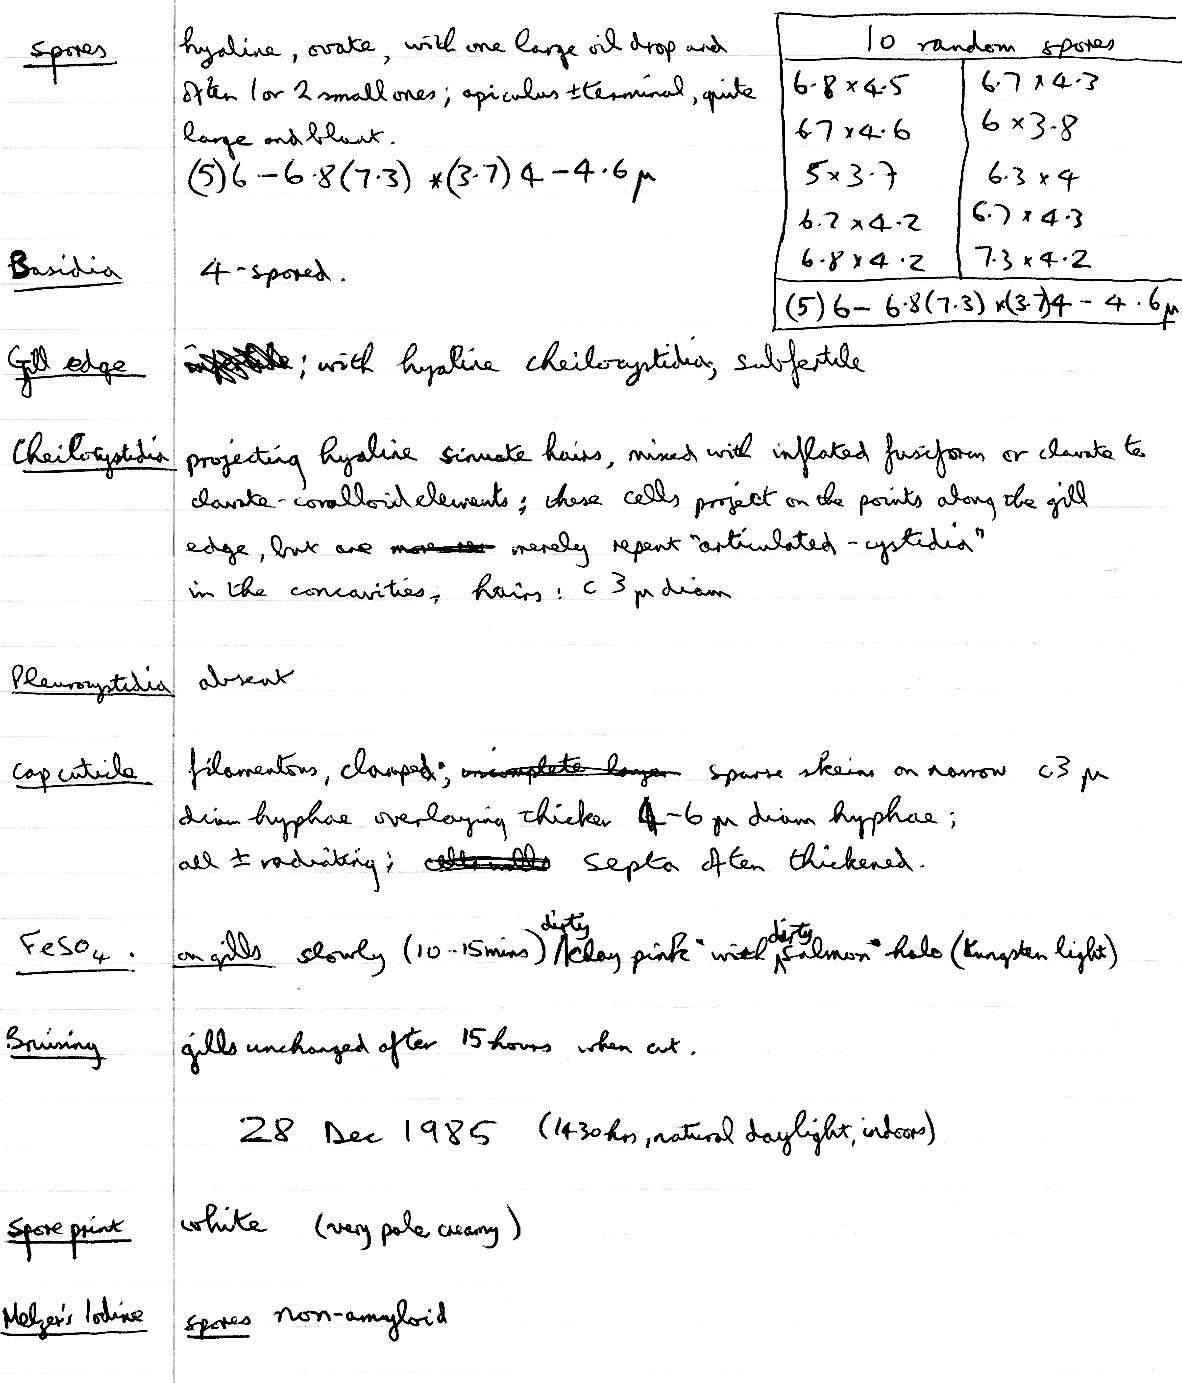 Spores hyaline, ovate, with one large oil drop and
often 1 or 2 small ones; apiculus ± terminal, quite
large and blunt.
(5)6-6.8(7.3) x (3.7)4-4.6μ
10 random spores
6.8 x 4.5 6.7 x 4.3
6.7 x 4.6 6 x 3.8
5 x 3.7 6.3 x 4
6.2 x 4.2 6.7 x 4.3
6.8 x 4.2 7.3 x 4.2
(5)6-6.8(7.3) x (3.7)4-4.6μ
Basidia 4-spored.
Gill edge ; with hyaline cheilocystidia, subfertile
Cheilocystidia projecting hyaline sinuate hairs, mixed with inflated fusiform or clavate to
clavate-coralloid elements; these cells project on the points along the gill
edge, but are merely repent "articulated-cystidia"
in the concavities, hairs: c 3μ diam
Pleurocystidia absent
cap cuticle filamentous, clamped; incomplete layer sparse skeins on narrow c3μ
diam hyphae overlaying thicker 4-6μ diam hyphae;
all ± radiating; cells walls septa often thickened.
FeSO4. on gills slowly (10-15mins) dirty "clay pink" with dirty "Salmon" halo (tungsten light)
Bruising gills unchanged after 15 hours when cut.
28 Dec 1985 (1430 hrs, natural daylight, indoors)
Spore print white (very pale creamy)
Melzer's Iodine spores non-amyloid